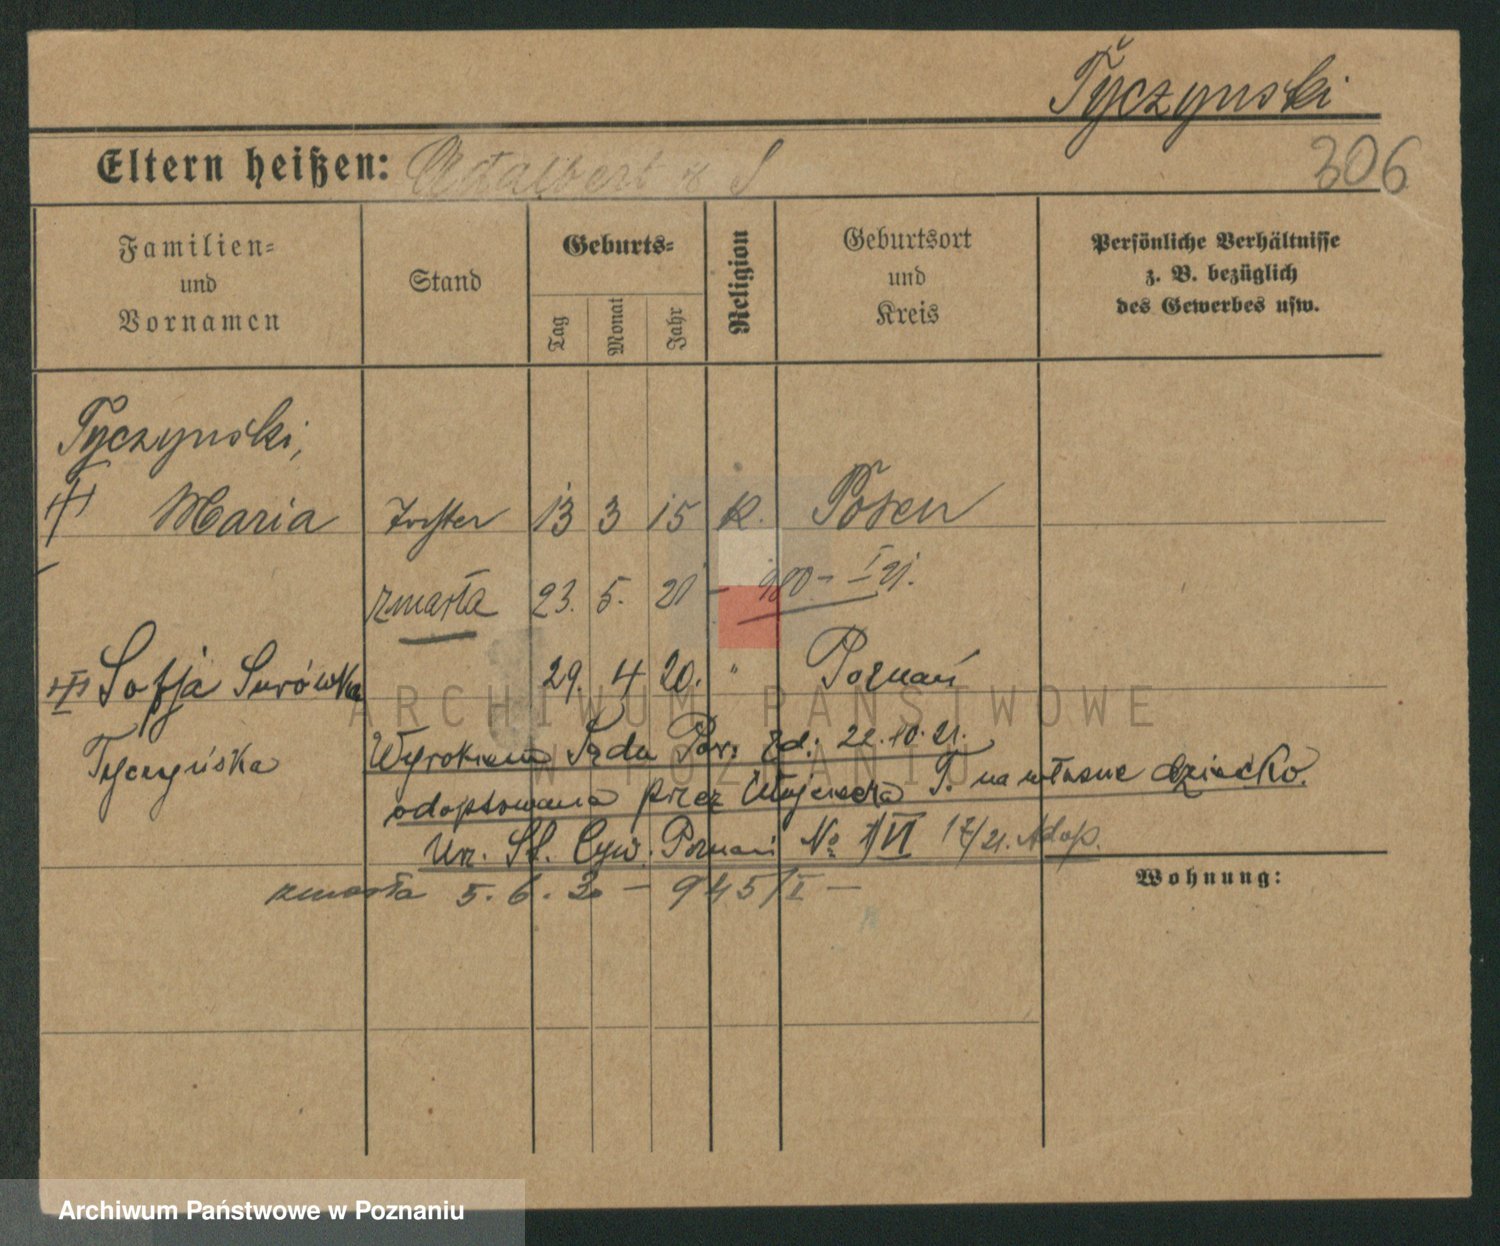 Tyczynski
Eltern heißen: Adalbert u S
306
Familien-
und
Vornamen
Stand
Geburts-
Tag
Monat
Jahr
Religion
Geburtsort
und
Kreis
Persönliche Verhältnisse
z. B. bezüglich
des Gewerbes usw.
Tyczynski,
Maria Tochter 13 3 15 k. Posen
zmarła 23. 5. 21 - 980 - I 21.
Sofja Surówka 29. 4 20. " Poznań
Tyczyńska
Wyrokiem Sądu Pow. zd. 22.10.21.
adoptowana przez Wojciecha T. na własne dziecko.
Urz. St. Cyw. Poznań No 1/VI 17/21. Adop.
zmarła 5. 6. 30 - 945/I -
Wohnung:
ARCHIWUM PAŃSTWOWE
W POZNANIU
Archiwum Państwowe w Poznaniu